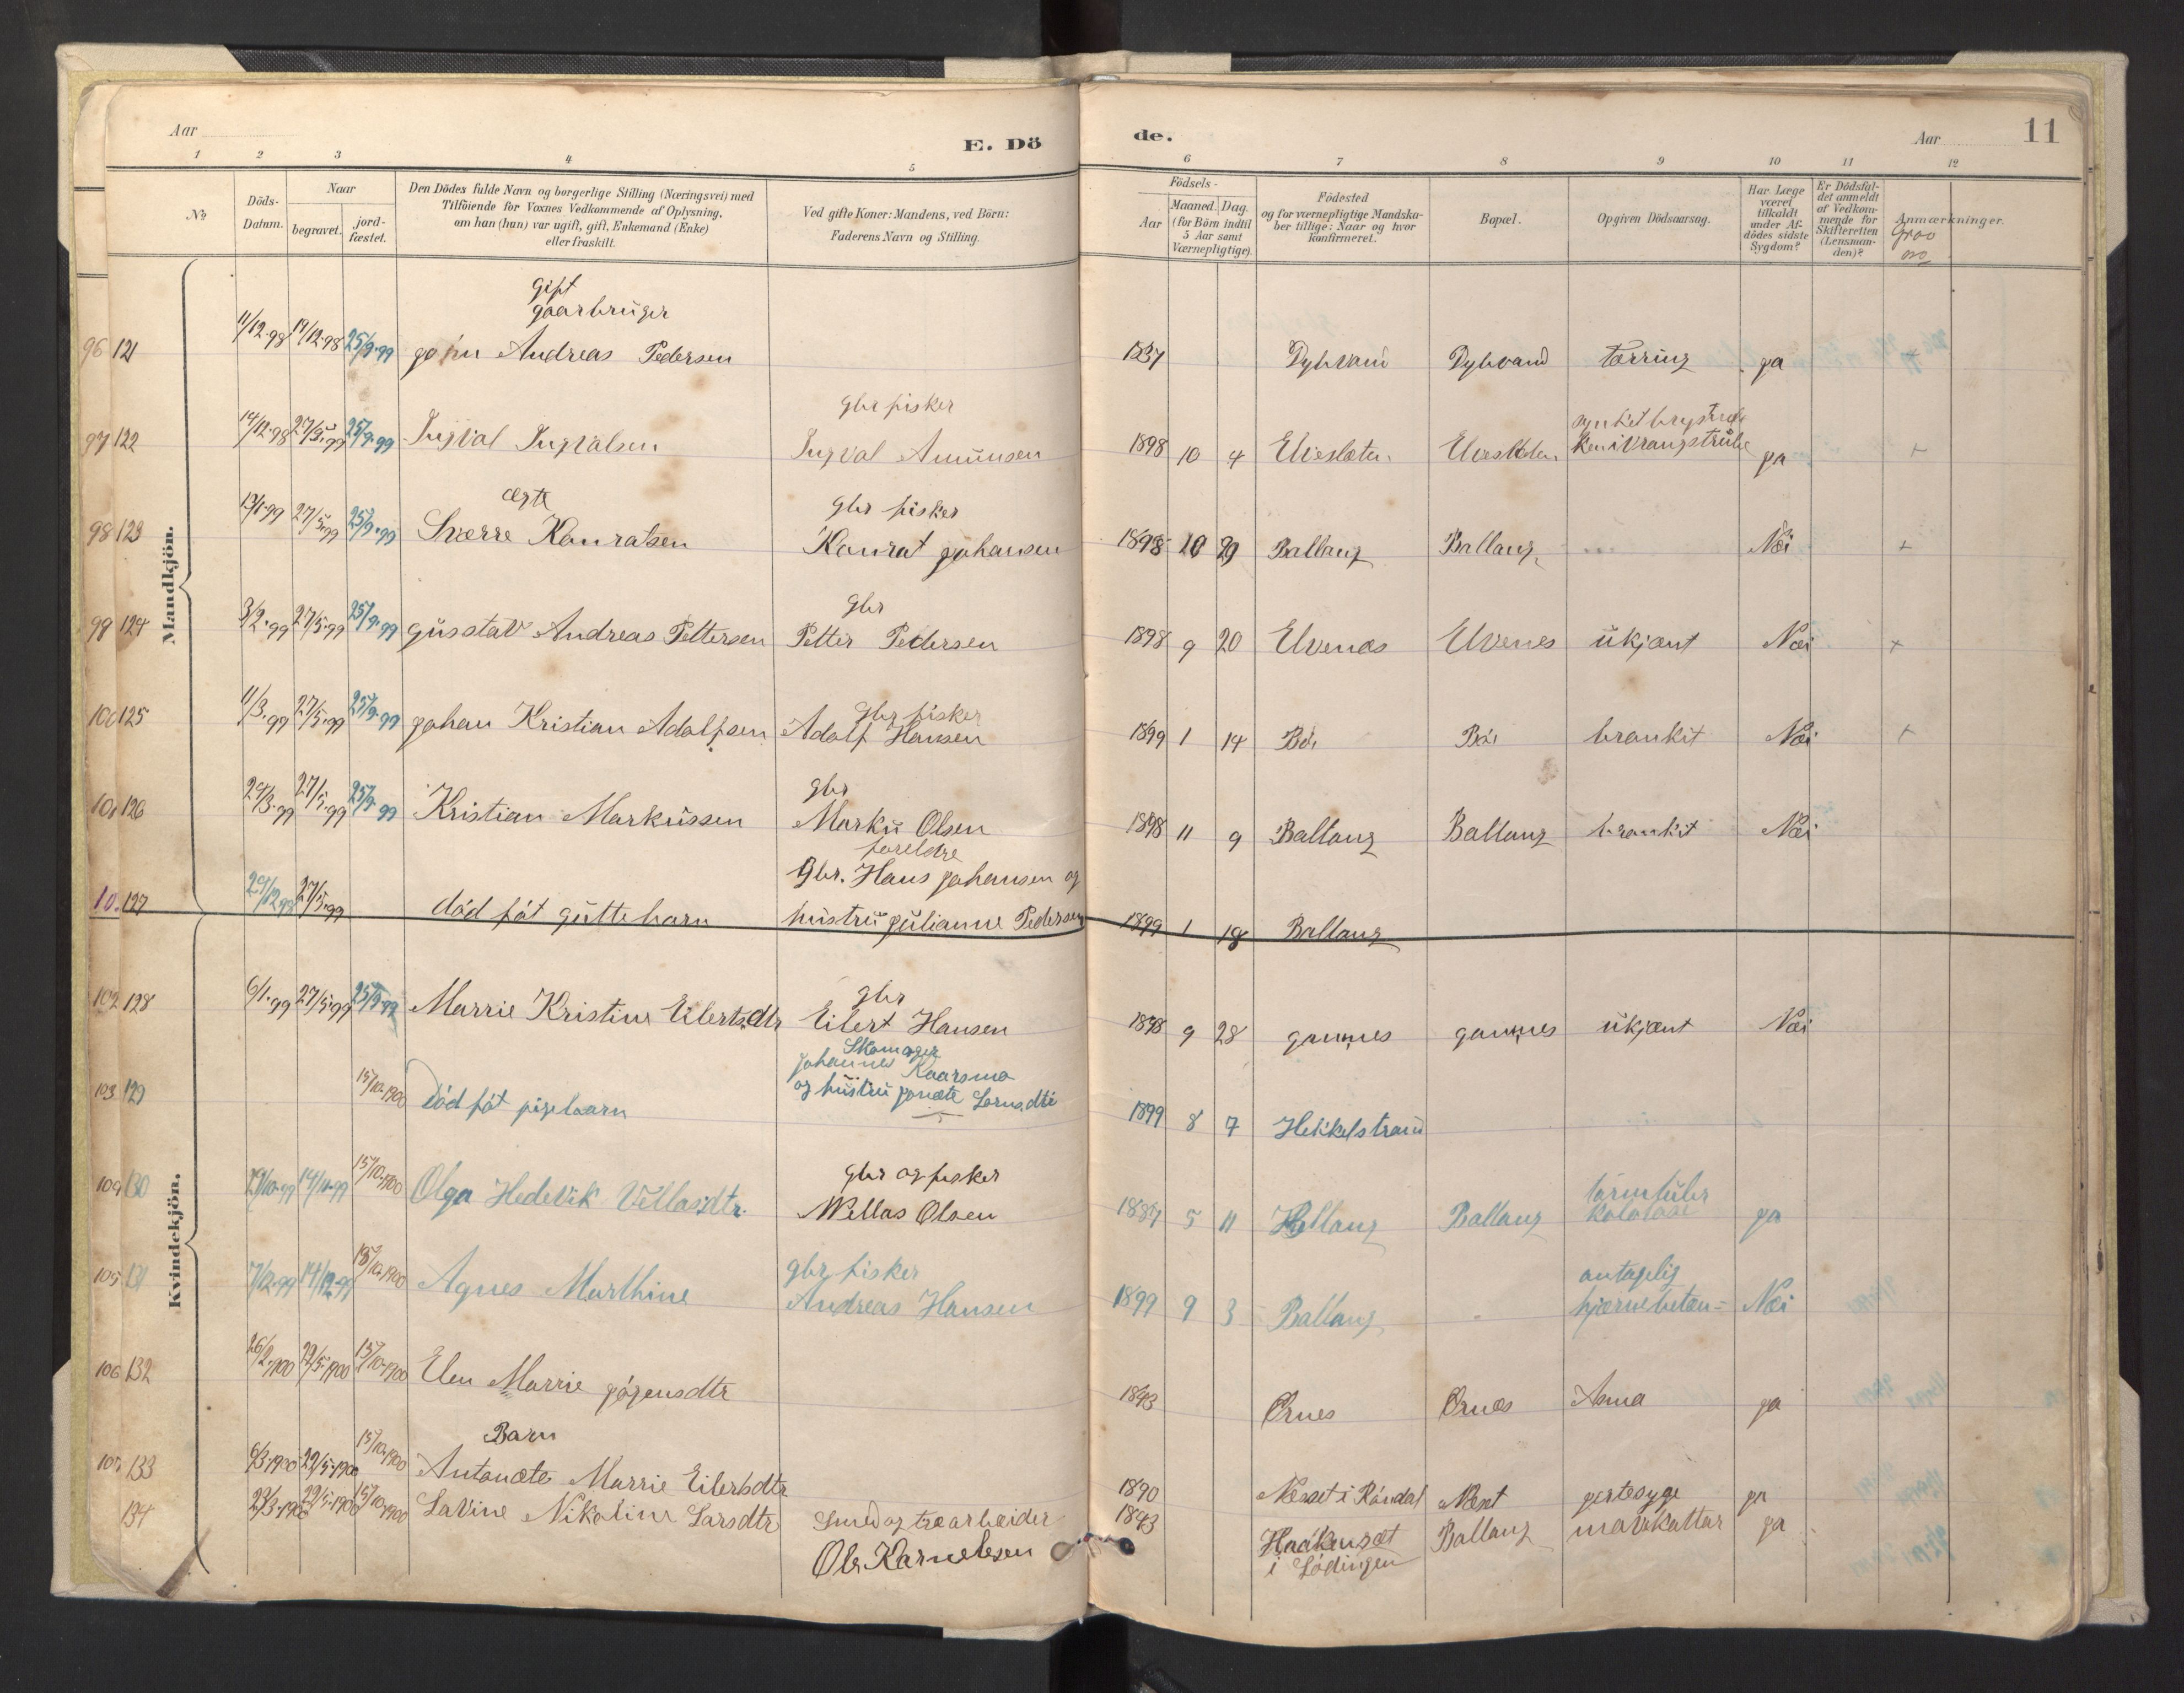 Aar
E. Dö
de.
Aar
11
1 2 3 4 5 6 7 8 9 10 11 12
№
Döds-
Datum.
Naar
begravet.
jord-
fæstet.
Den Dödes fulde Navn og borgerlige Stilling (Næringsvei) med
Tilföiende for Voxnes Vedkommende af Oplysning,
om han (hun) var ugift, gift, Enkemand (Enke)
eller fraskilt.
Ved gifte Koner: Mandens, ved Börn:
Faderens Navn og Stilling.
Födsels-
Aar
Maaned. Dag.
(for Börn indtil
5 Aar samt
Værnepligtige).
Födested
og for værnepligtige Mandska-
ber tillige: Naar og hvor
konfirmeret.
Bopæl.
Opgiven Dödsaarsag.
Har Læge
været
tilkaldt
under Af-
dödes sidste
Sygdom?
Er Dödsfal-
det anmeldt
af Vedkom-
mende for
Skifteretten
(Lensman-
den)?
Anmærkninger.
Mandkjön.
gift
gaarbruger
96 121 11/12-98 19/12-98 25/9-99 john Andreas Pedersen 1837 Dybvand Dybvand Tærring ja
gbr fisker
97 122 14/12-98 27/5-99 25/9-99 Ingval Ingvalsen Ingval Amunsen 1898 10 4 ja +
ægte
gbr fisker
98 123 13/1-99 27/5-99 25/9-99 Sværre Konratsen Konrat johansen 1898 10 29 Ballang Ballang Næi +
gbr
99 124 3/2-99 27/5-99 25/9-99 güsstav Andreas Pettersen Petter Pedersen 1898 9 20 Elvenæs Elvenes ükjænt Næi +
gbr fisker
100 125 11/3-99 27/5-99 25/9-99 johan Kristian Adolfsen Adolf Hansen 1899 1 14 Bøi Bøi brankit Næi +
gbr
126 29/3-99 27/5-99 25/9-99 Kristian Markussen Markü Olsen 1898 11 9 Ballang Ballang brankit Næi
foreldre
gbr. Hans johansen og
127 29/12-98 27/5-99 død føt gütte barn hüstrü jülianne Pedersen 1899 1 18 Ballang
Kvindekjön.
gbr
102 128 6/1-99 27/5-99 25/9-99 Marrie Kristine Eilertsdtr Eilert Hansen 1898 9 28 jannes jannes ükjænt Næi
Skomager
johannes Kaarsmo
og hüstrü jonæte Larnsdtr
103 129 15/10-1900 Død føt pigebarn 1899 8 7 Hekkelstrand
gbr og fisker
104 130 29/10-99 14/11-99 15/10-1900 Olga Hedevik Vellasdtr. Wellas Olsen 1889 5 11 Ballang Ballang ja
gbr fisker
antagelig
105 131 7/12-99 14/12-99 15/10-1900 Agnes Marthine Andreas Hansen 1899 9 3 Ballang hjærnebetæn= Næi
106 132 26/2-1900 22/5-1900 15/10-1900 Elen Marrie jørgensdtr 1843 Ørnes Ørnæs Asma ja
Barn
133 6/3-1900 22/5-1900 15/10-1900 Antonæte Marrie Eilertsdtr 1890 Næsset i Råndal Næset jertesyge ja
134 23/3-1900 22/5-1900 15/10-1900 Lavine Nikoline Larsdtr Smed og træarbæider 1843 Ballang mavekattar ja
Ole Karnelesen
i Lødingen